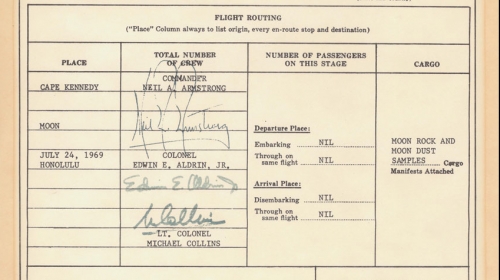 FLIGHT ROUTING
("Place" Column always to list origin, every en-route stop and destination)
PLACE
TOTAL NUMBER
OF CREW
NUMBER OF PASSENGERS
ON THIS STAGE
CARGO
CAPE KENNEDY
COMMANDER
NEIL A. ARMSTRONG
MOON
Neil A. Armstrong
JULY 24, 1969
HONOLULU
COLONEL
EDWIN E. ALDRIN, JR.
Edwin E. Aldrin Jr
M Collins
LT. COLONEL
MICHAEL COLLINS
Departure Place:
Embarking NIL
Through on
same flight NIL
Arrival Place:
Disembarking NIL
Through on
same flight NIL
MOON ROCK AND
MOON DUST
SAMPLES Cargo
Manifests Attached